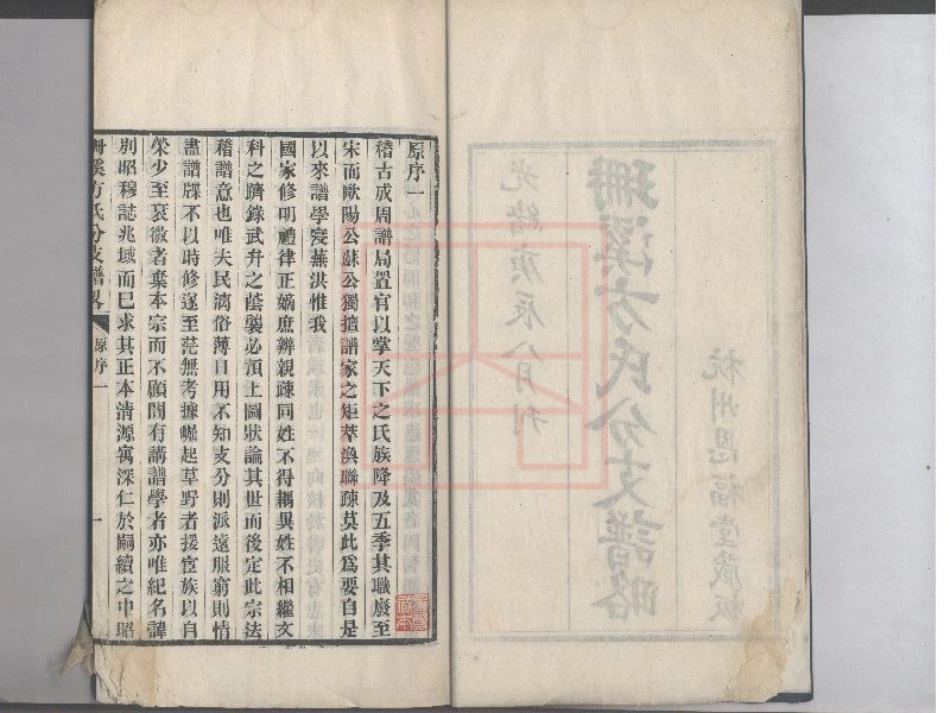 珊溪方氏分支譜略
光緒庚辰八月刊
杭州恩福堂藏板
原序一
稽古成周譜局置官以掌天下之氏族降及五季其職廢至
宋而歐陽公蘇公獨擅譜家之矩萃渙聯疎莫此爲要自是
以來譜學寖蕪洪惟我
國家修明禮律正嫡庶辨親疎同姓不得耦異姓不相繼文
科之躋錄武弁之蔭襲必須上圖狀論其世而後定此宗法
稽譜意也唯夫民漓俗薄日用不知支分則派遠服窮則情
盡譜牒不以時修遂至茫無考據崛起草野者援宦族以自
榮少至衰微者棄本宗而不顧間有講譜學者亦唯紀名諱
別昭穆誌兆域而已求其正本清源寓深仁於嗣續之中昭
珊溪方氏分支譜畧
原序一
一